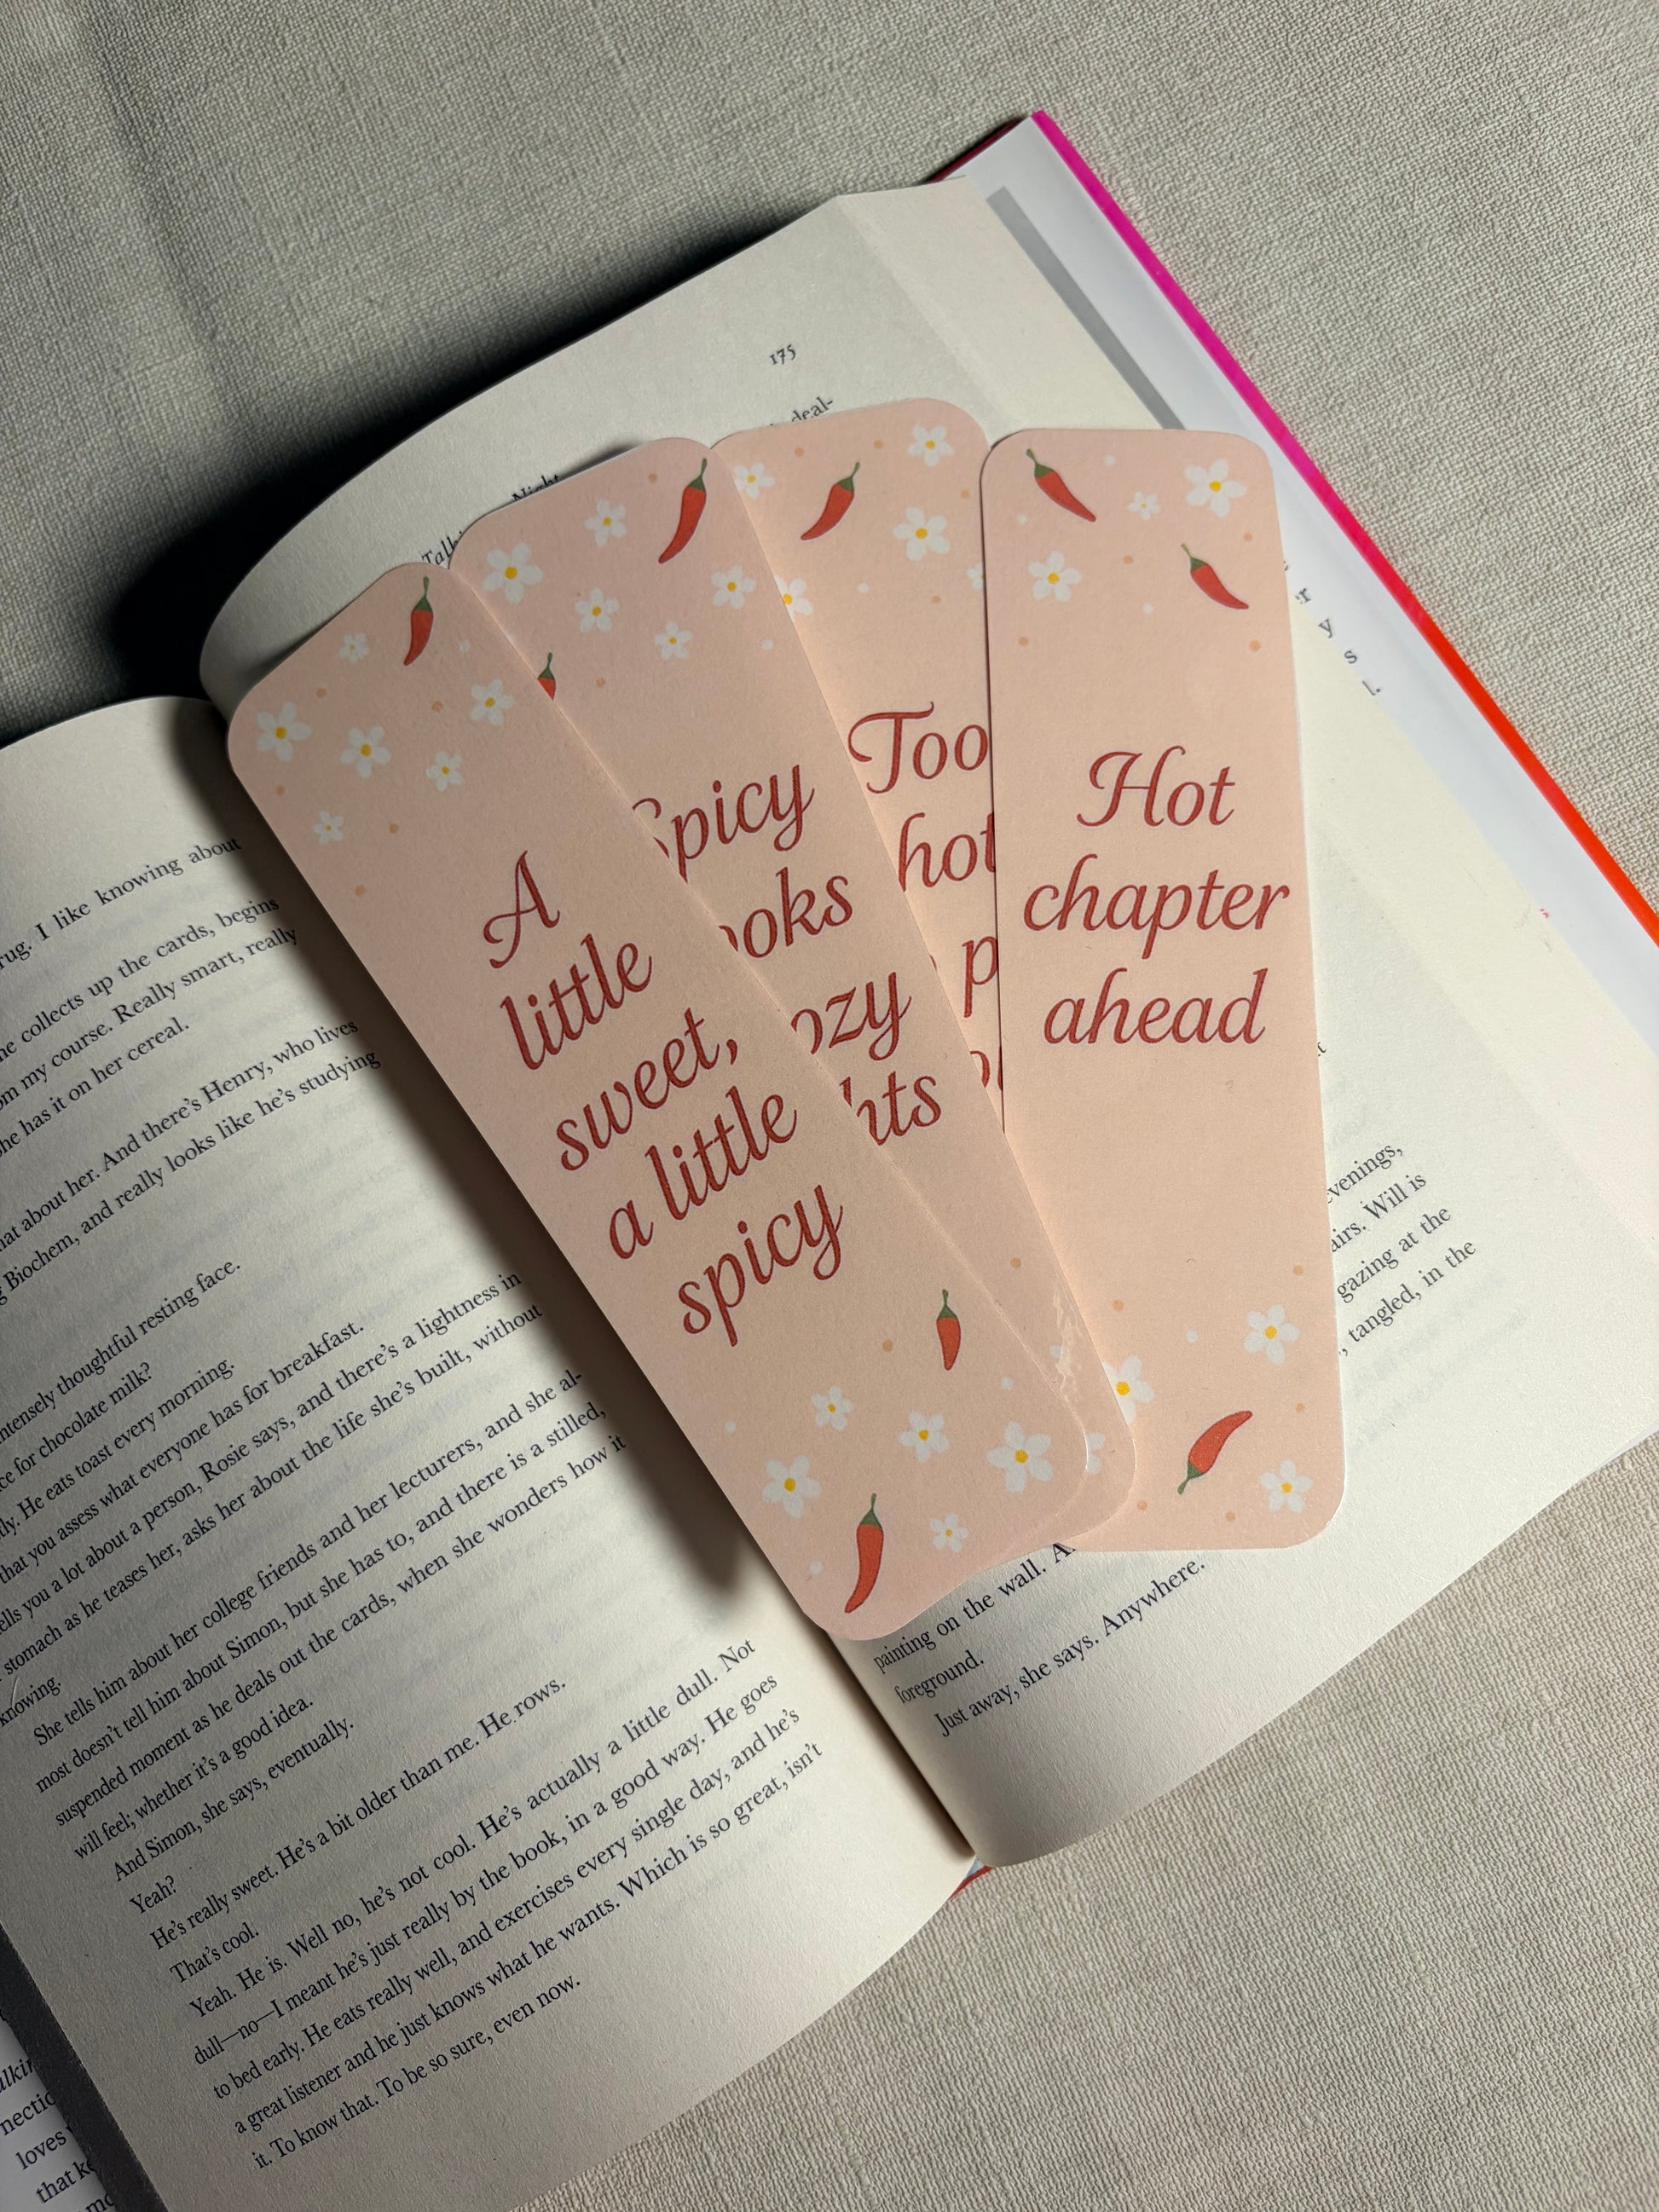 175
deal-
Night
Talki
A
little
sweet,
a little
spicy
Spicy
ooks
ozy
hts
Too
hot
p
Hot
chapter
ahead
rug. I like knowing about
he collects up the cards, begins
om my course. Really smart, really
he has it on her cereal.
hat about her. And there's Henry, who lives
g Biochem, and really looks like he's studying
ntensely thoughtful resting face.
ce for chocolate milk?
tly. He eats toast every morning.
that you assess what everyone has for breakfast.
ells you a lot about a person, Rosie says, and there's a lightness in
stomach as he teases her, asks her about the life she's built, without
knowing.
She tells him about her college friends and her lecturers, and she al-
most doesn't tell him about Simon, but she has to, and there is a stilled,
suspended moment as he deals out the cards, when she wonders how it
will feel; whether it's a good idea.
And Simon, she says, eventually.
Yeah?
He's really sweet. He's a bit older than me. He rows.
That's cool.
Yeah. He is. Well no, he's not cool. He's actually a little dull. Not
dull—no—I meant he's just really by the book, in a good way. He goes
to bed early. He eats really well, and exercises every single day, and he's
a great listener and he just knows what he wants. Which is so great, isn't
it. To know that. To be so sure, even now.
er
y
s
l.
evenings,
airs. Will is
gazing at the
, tangled, in the
painting on the wall. A
foreground.
Just away, she says. Anywhere.
alkin
nectio
loves
that ke